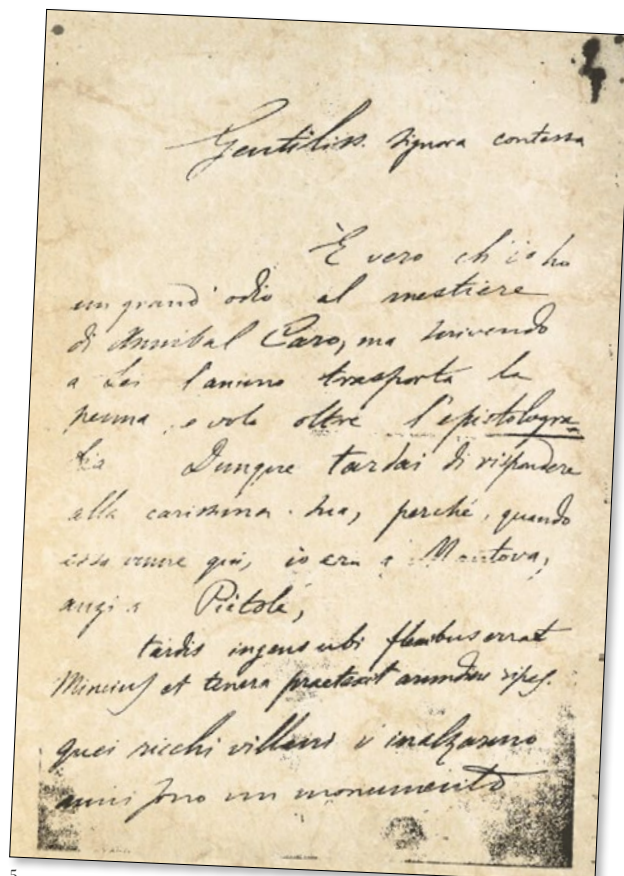 Gentiliss. signora contessa
È vero ch'io ho
un grand' odio al mestiere
di Annibal Caro, ma scrivendo
a Lei l'animo trasporta la
penna, e volo oltre l'epistologra=
fia Dunque tardai di rispondere
alla carissima sua, perché, quando
essa venne qui, io era a Mantova,
anzi a Pietole,
tardis ingens ubi flexibus errat
Mincius et tenera praetexit arundine ripas.
quei ricchi villani v'inalzarono
anni sono un monumento
5